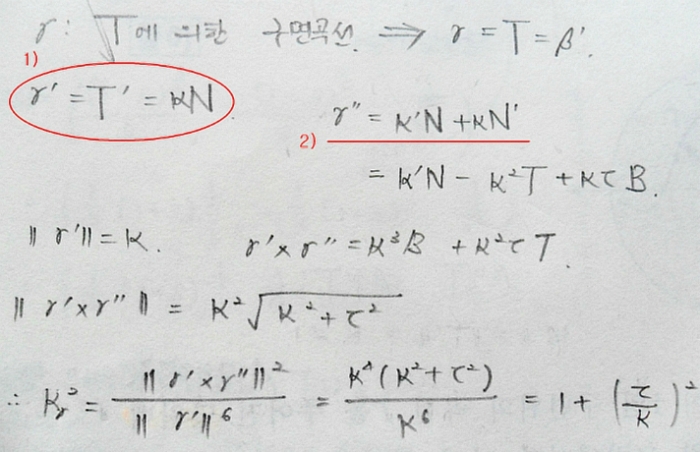 γ : T에 의한 구면곡선 ⟹ γ = T = β'.
1)
γ' = T' = κN.
γ'' = κ'N + κN'
2)
= κ'N - κ²T + κτB.
‖γ'‖ = κ. γ' × γ'' = κ³B + κ²τT.
‖γ' × γ''‖ = κ²√(κ² + τ²)
∴ κγ² = ‖γ' × γ''‖² / ‖γ'‖⁶ = κ⁴(κ² + τ²) / κ⁶ = 1 + (τ/κ)²